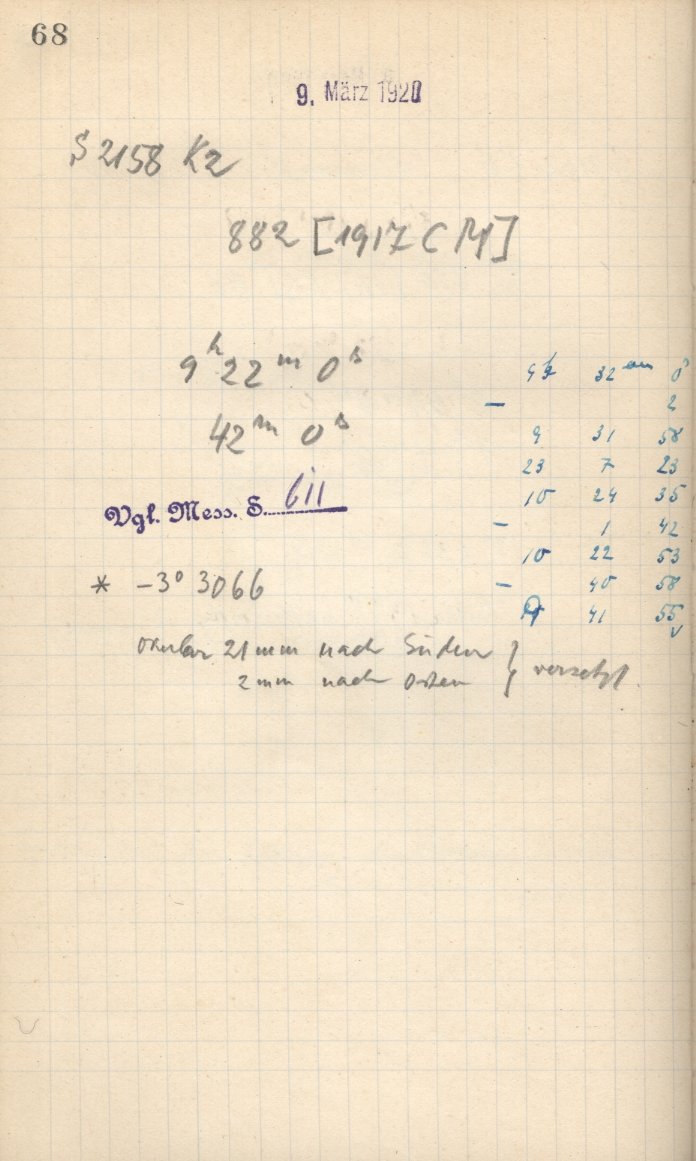 68
9. März 1920
S 2158 K2
882 [1917 CM]
9h 22m 0s
42m 0s
Vgl. Mess. S. 611
* -3° 3066
Okular 21mm nach Süden } versetzt
2mm nach Osten
9h 32m 0
- 2
9 31 58
23 7 23
10 24 35
- 1 42
10 22 53
- 40 58
9 41 55